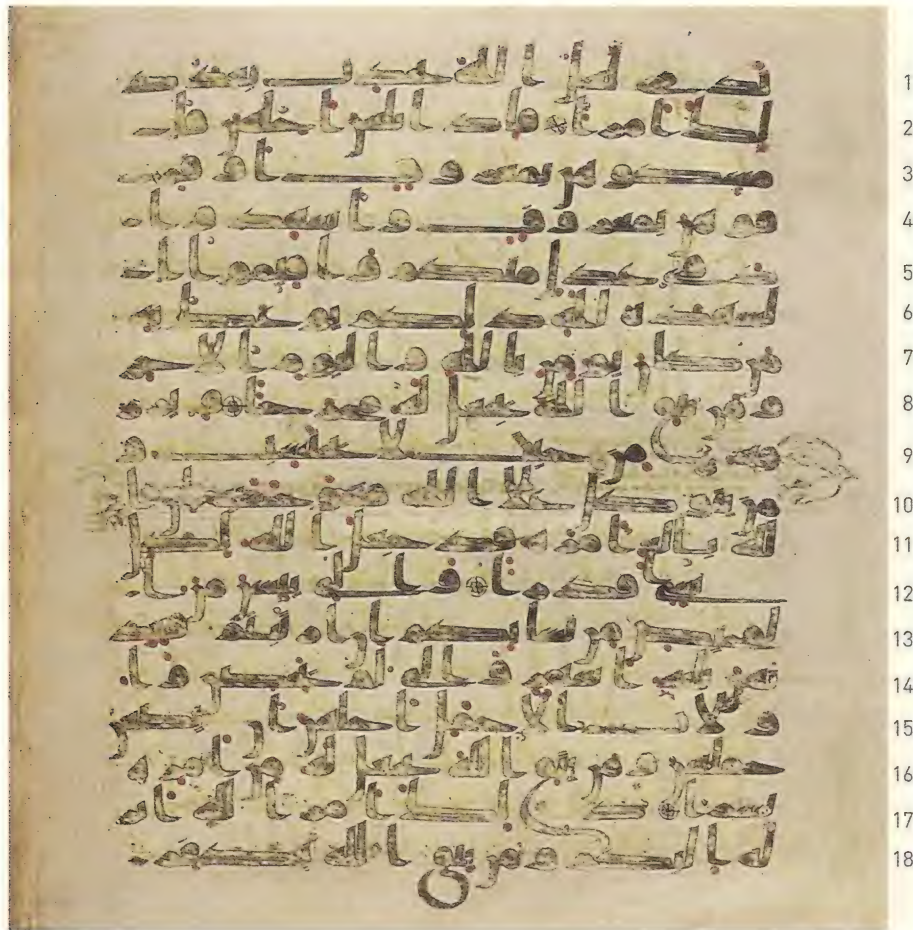 نفسه لا تدرى لعل الله يحدث بعد ذ
لك امرا فاذا بلغن اجلهن فا
مسكوهن بمعروف او فر
قوهن بمعروف واشهدوا
ذوى عدل منكم واقيموا ا
لشهدة لله ذلكم يوعظ به
من كان يومن بالله واليوم الاخر
ومن يتق الله يجعل له مخرجا وير
زقه من حيث لا يحتسب و
من يتوكل على الله فهو حسبه ان
الله بلغ امره قد جعل الله لكل
شى قدرا والى يئسن من ا
لمحيض من نسائكم ان ارتبتم فعد
تهن ثلثة اشهر والى لم يحضن وا
ولت الاحمال اجلهن ان يضعن
حملهن ومن يتق الله يجعل له من امره
يسرا ذلك امر الله انز
له اليكم ومن يتق الله يكفر
1
2
3
4
5
6
7
8
9
10
11
12
13
14
15
16
17
18